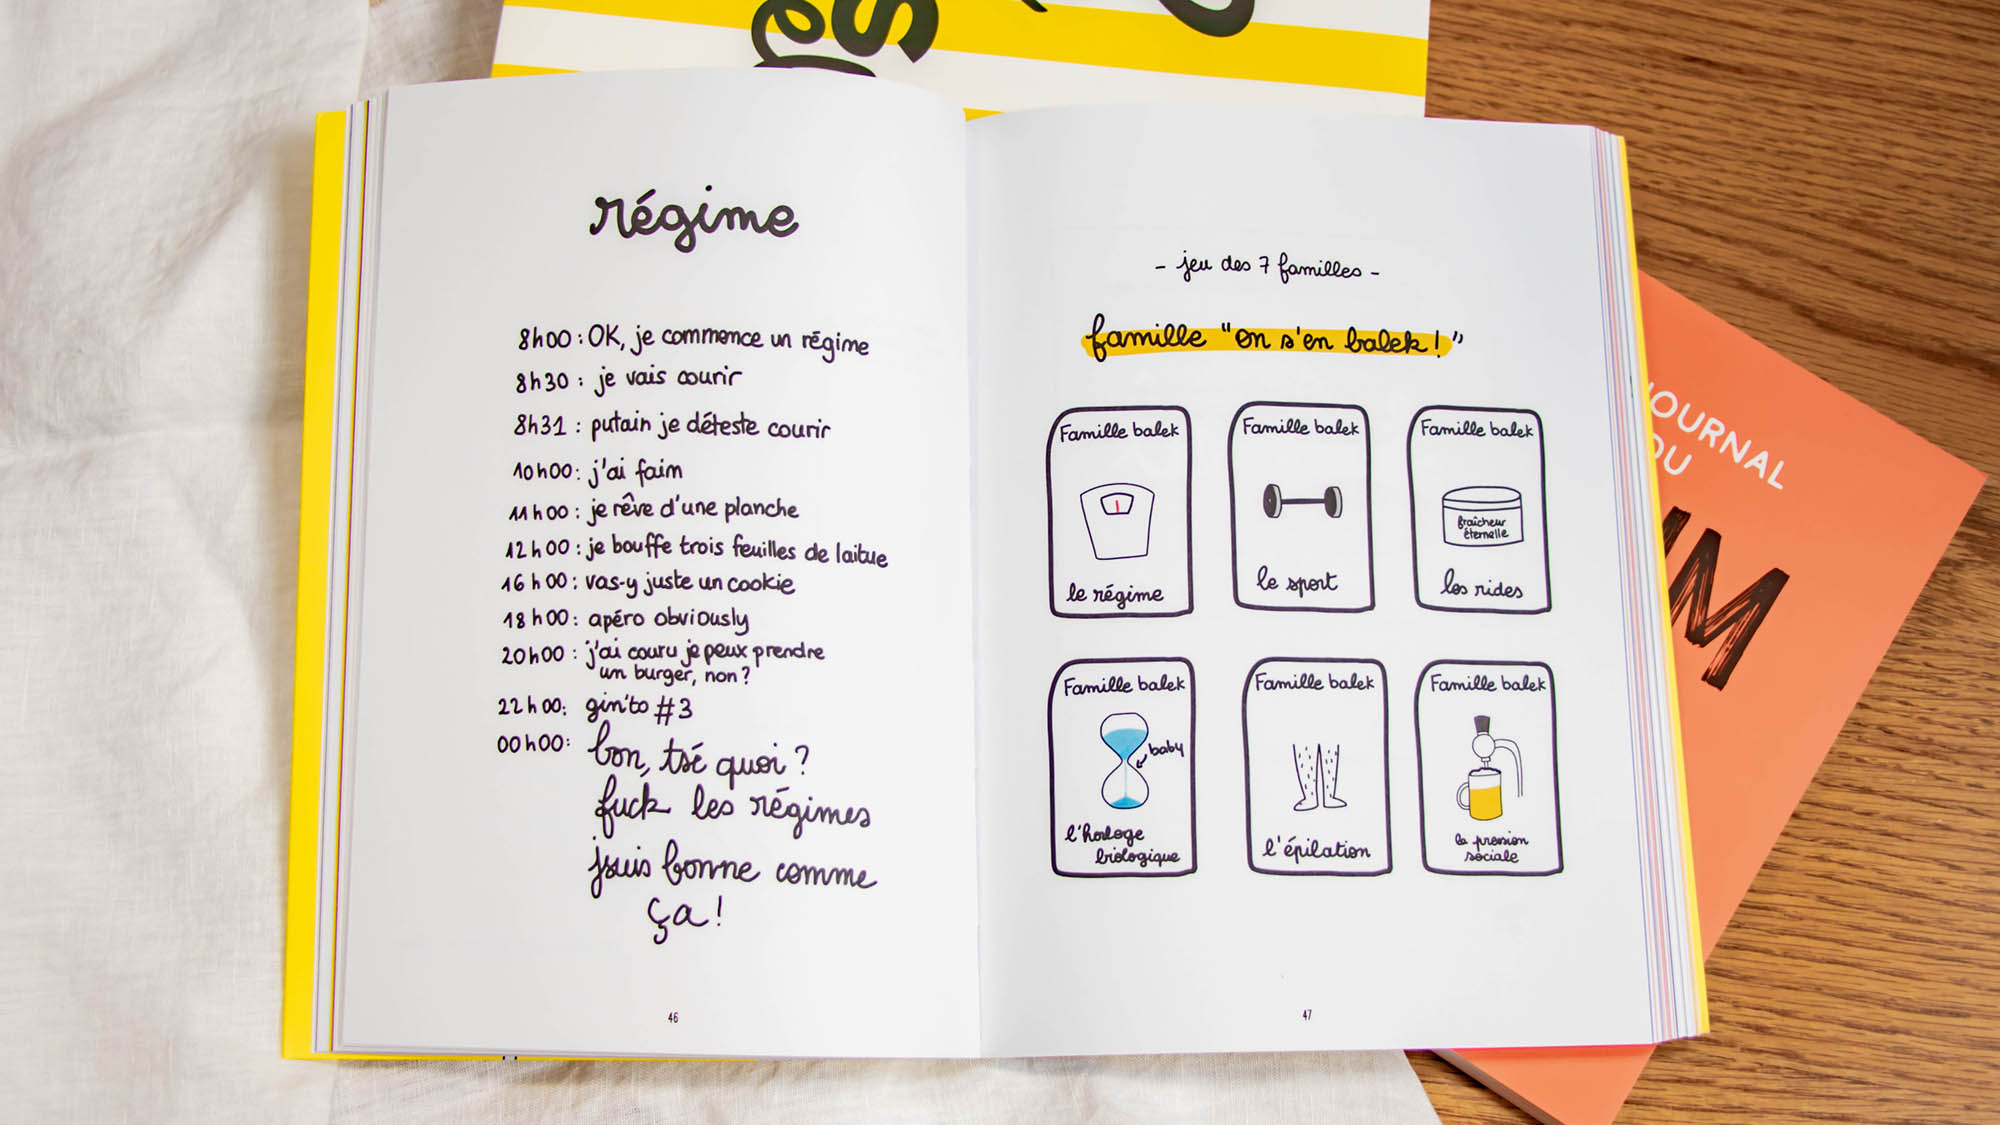 régime
8h00 : OK, je commence un régime
8h30 : je vais courir
8h31 : putain je déteste courir
10h00 : j'ai faim
11h00 : je rêve d'une planche
12h00 : je bouffe trois feuilles de laitue
16h00 : vas-y juste un cookie
18h00 : apéro obviously
20h00 : j'ai couru je peux prendre
un burger, non ?
22h00 : gin'to #3
00h00 : bon, tsé quoi ?
fuck les régimes
jsuis bonne comme
ça !
46
- jeu des 7 familles -
famille "on s'en balek !"
Famille balek
le régime
Famille balek
le sport
Famille balek
fraîcheur
éternelle
les rides
Famille balek
baby
l'horloge
biologique
Famille balek
l'épilation
Famille balek
la pression
sociale
47
JOURNAL
DU